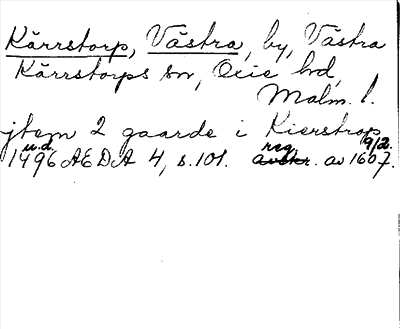 Kärrstorp, Västra, by, Västra
Kärrstorps sn, Oxie hd,
Malm. l.
jtem 2 gaarde i Kierstrop
u.d. 9/2.
1496 AEDA 4, s. 101. reg. avskr. av 1607.